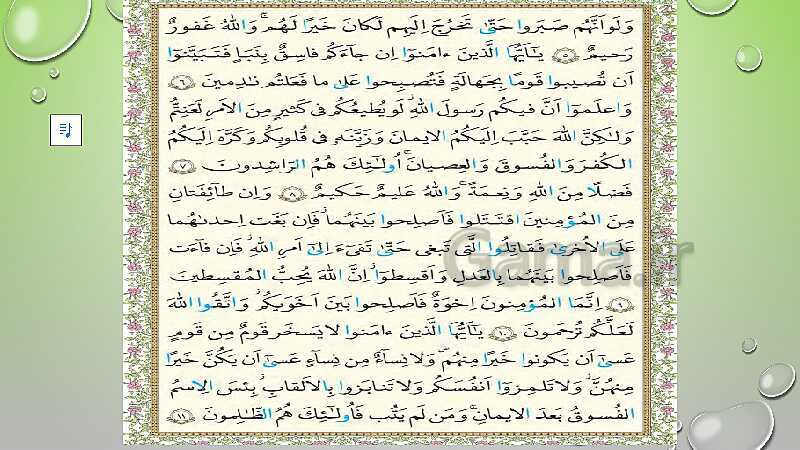 وَلَو اَنَّهُم صَبَروا حَتّىٰ تَخرُجَ اِلَيهِم لَكانَ خَيرًا لَهُم ۚ وَ اللهُ غَفورٌ
رَحيمٌ ﴿٥﴾ يٰاَيُّهَا الَّذينَ ءامَنوا اِن جاءَكُم فاسِقٌ بِنَبَاٍ فَتَبَيَّنوا
اَن تُصيبوا قَومًا بِجَهالَةٍ فَتُصبِحوا عَلىٰ ما فَعَلتُم نادِمينَ ﴿٦﴾
وَ اعلَموا اَنَّ فيكُم رَسولَ اللهِ ۚ لَو يُطيعُكُم فى كَثيرٍ مِنَ الاَمرِ لَعَنِتُّم
وَلٰكِنَّ اللهَ حَبَّبَ اِلَيكُمُ الايمانَ وَزَيَّنَهو فى قُلوبِكُم وَكَرَّهَ اِلَيكُمُ
الكُفرَ وَ الفُسوقَ وَ العِصيانَ ۚ اُولٰئِكَ هُمُ الرّاشِدونَ ﴿٧﴾
فَضلًا مِنَ اللهِ وَ نِعمَةً ۚ وَ اللهُ عَليمٌ حَكيمٌ ﴿٨﴾ وَ اِن طائِفَتانِ
مِنَ المُؤمِنينَ اقتَتَلوا فَاَصلِحوا بَينَهُما ۖ فَاِن بَغَت اِحدىٰهُما
عَلَى الاُخرىٰ فَقاتِلُوا الَّتى تَبغى حَتّىٰ تَفىءَ اِلىٰ اَمرِ اللهِ ۚ فَاِن فاءَت
فَاَصلِحوا بَينَهُما بِالعَدلِ وَ اَقسِطوا ۖ اِنَّ اللهَ يُحِبُّ المُقسِطينَ
﴿٩﴾ اِنَّمَا المُؤمِنونَ اِخوَةٌ فَاَصلِحوا بَينَ اَخَوَيكُم ۚ وَ اتَّقُوا اللهَ
لَعَلَّكُم تُرحَمونَ ﴿١٠﴾ يٰاَيُّهَا الَّذينَ ءامَنوا لا يَسخَر قَومٌ مِن قَومٍ
عَسىٰ اَن يَكونوا خَيرًا مِنهُم وَلا نِساءٌ مِن نِساءٍ عَسىٰ اَن يَكُنَّ خَيرًا
مِنهُنَّ ۖ وَلا تَلمِزوا اَنفُسَكُم وَلا تَنابَزوا بِالاَلقابِ ۖ بِئسَ الاِسمُ
الفُسوقُ بَعدَ الايمانِ ۚ وَمَن لَم يَتُب فَاُولٰئِكَ هُمُ الظّالِمونَ ﴿١١﴾
Gama.ir